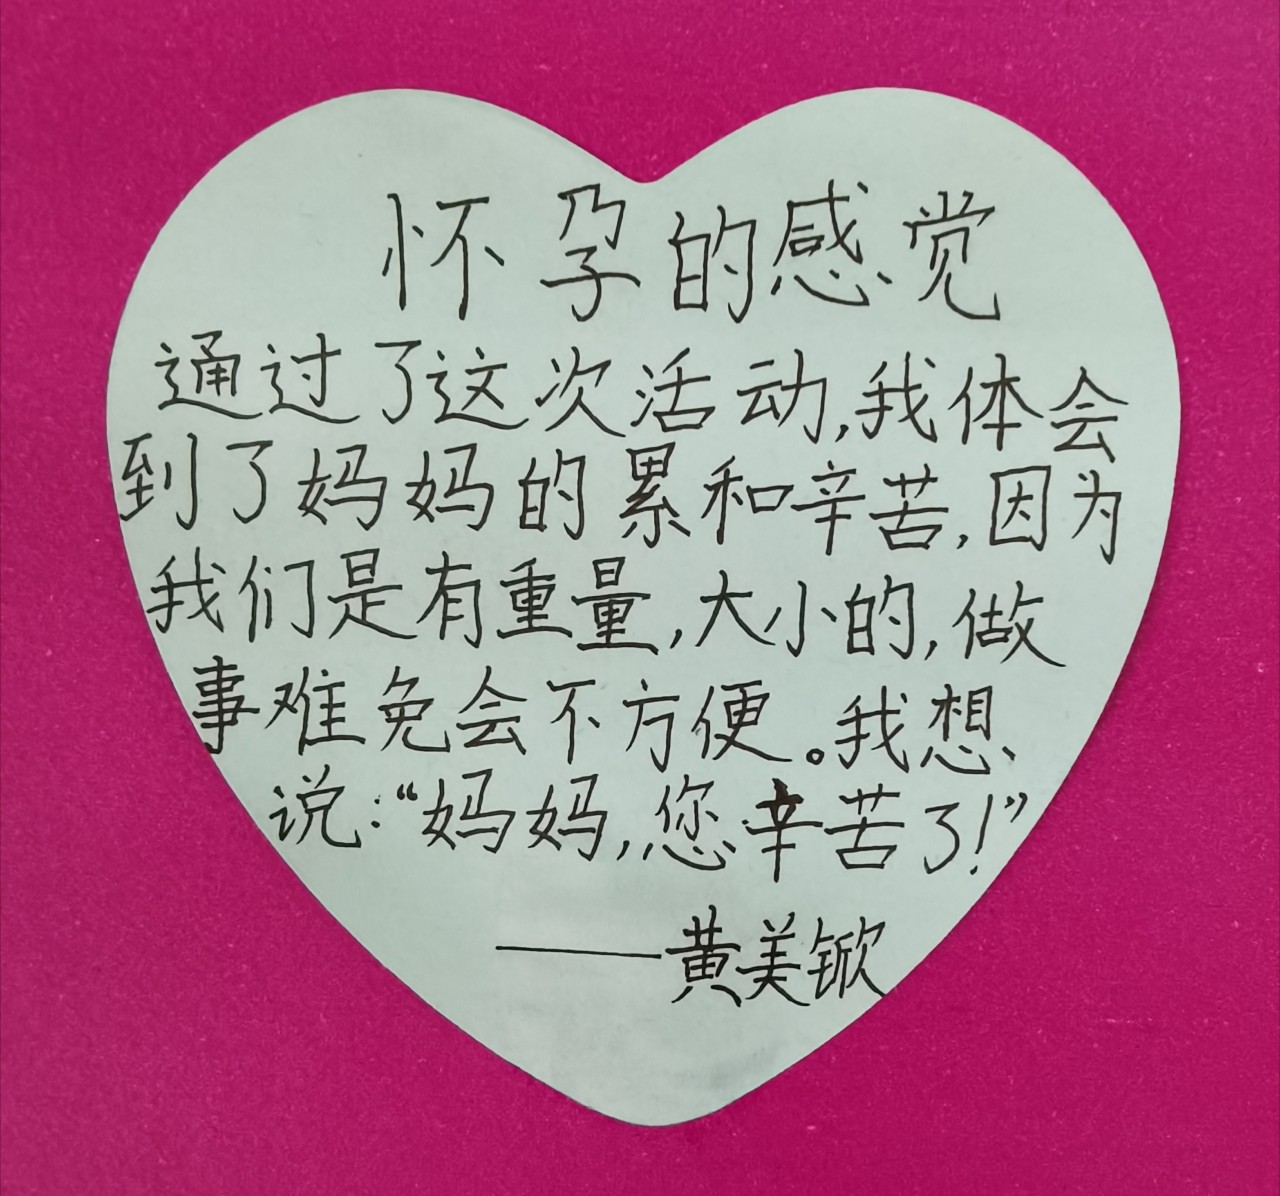 怀孕的感觉
通过了这次活动,我体会
到了妈妈的累和辛苦,因为
我们是有重量,大小的,做
事难免会不方便。我想
说:“妈妈,您辛苦了!”
——黄美锨